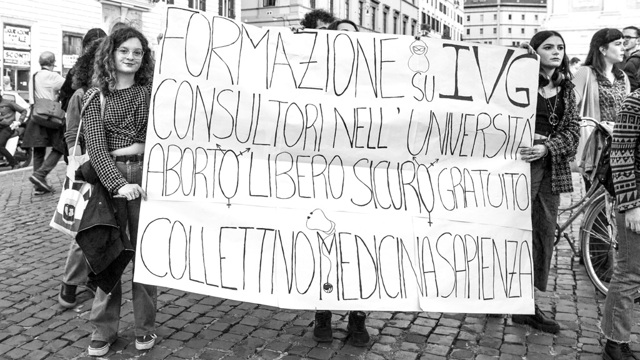 FORMAZIONE SU IVG
CONSULTORI NELL'UNIVERSITÀ
ABORTO LIBERO SICURO GRATUITO
COLLETTIVO MEDICINA SAPIENZA